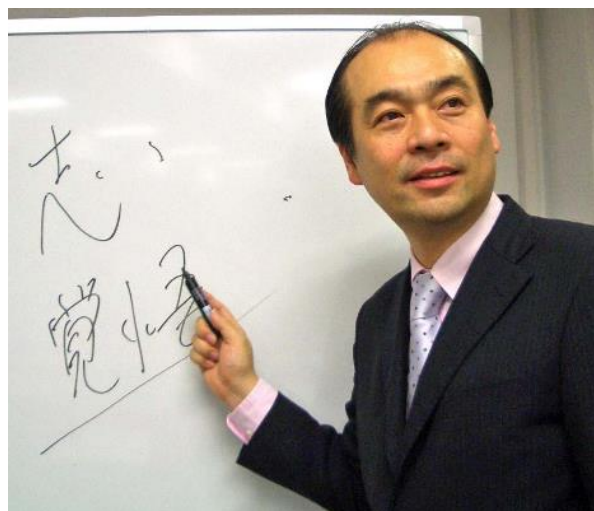 志
覚悟